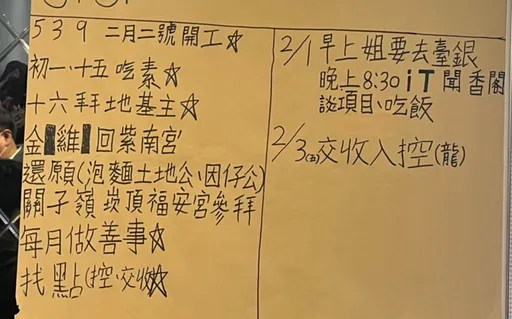 539 二月二號開工☆
初一、十五吃素☆
十六拜地基主☆
金雞回紫南宮
還願(泡麵土地公、囝仔公)
關子嶺崁頂福安宮參拜
每月做善事☆
找點(控、交收)☆
2/1早上姐要去臺銀
晚上8:30 iT聞香閣
談項目、吃飯
2/3(五)交收入控(龍)